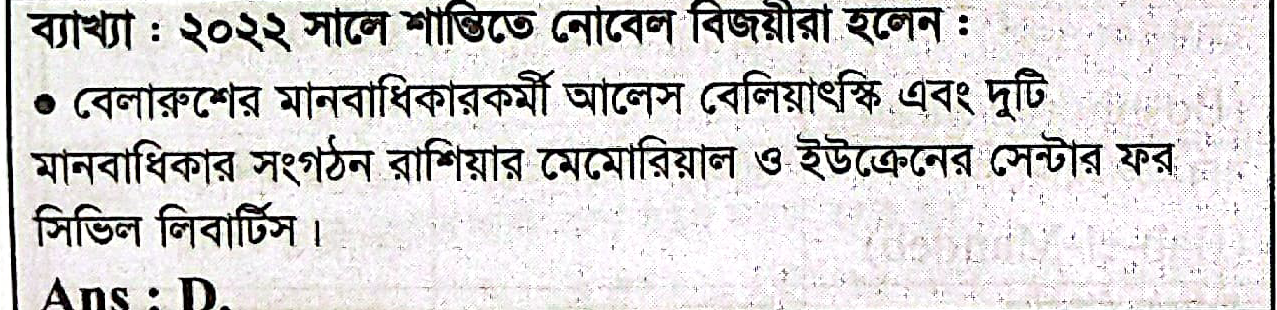 ব্যাখ্যা : ২০২২ সালে শান্তিতে নোবেল বিজয়ীরা হলেন :
● বেলারুশের মানবাধিকারকর্মী আলেস বেলিয়াৎস্কি এবং দুটি
মানবাধিকার সংগঠন রাশিয়ার মেমোরিয়াল ও ইউক্রেনের সেন্টার ফর
সিভিল লিবার্টিস।
Ans : D.